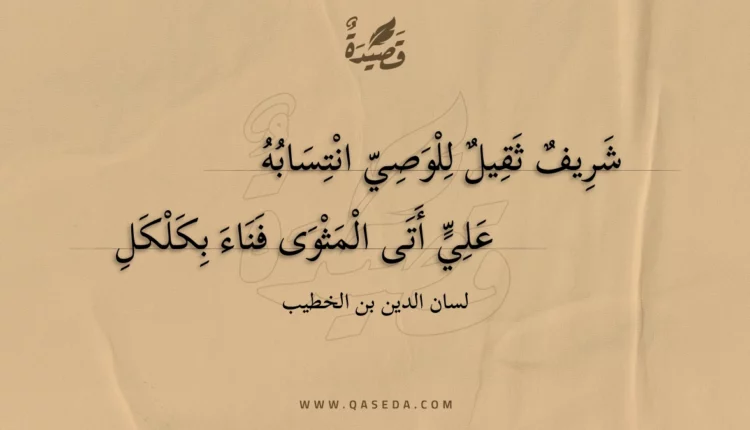 قَصِيدَةٌ
شَرِيفٌ ثَقِيلٌ لِلْوَصِيّ انْتِسَابُهُ
عَلِيٍّ أَتَى الْمَثْوَى فَنَاءَ بِكَلْكَلِ
لسان الدين بن الخطيب
WWW.QASEDA.COM